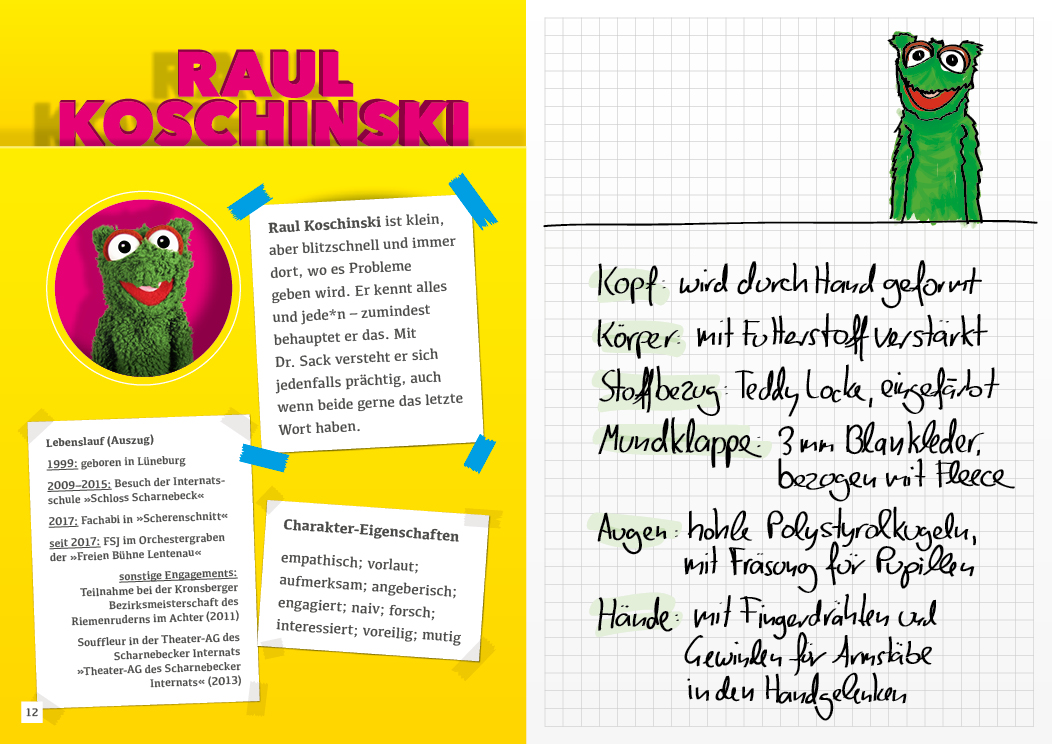 RAUL
KOSCHINSKI
Raul Koschinski ist klein,
aber blitzschnell und immer
dort, wo es Probleme
geben wird. Er kennt alles
und jede*n – zumindest
behauptet er das. Mit
Dr. Sack versteht er sich
jedenfalls prächtig, auch
wenn beide gerne das letzte
Wort haben.
Lebenslauf (Auszug)
1999: geboren in Lüneburg
2009–2015: Besuch der Internats-
schule »Schloss Scharnebeck«
2017: Fachabi in »Scherenschnitt«
seit 2017: FSJ im Orchestergraben
der »Freien Bühne Lentenau«
sonstige Engagements:
Teilnahme bei der Kronsberger
Bezirksmeisterschaft des
Riemenruderns im Achter (2011)
Souffleur in der Theater-AG des
Scharnebecker Internats
»Theater-AG des Scharnebecker
Internats« (2013)
Charakter-Eigenschaften
empathisch; vorlaut;
aufmerksam; angeberisch;
engagiert; naiv; forsch;
interessiert; voreilig; mutig
12
Kopf: wird durch Hand geformt
Körper: mit Futterstoff verstärkt
Stoffbezug: Teddy Locke, eingefärbt
Mundklappe: 3mm Blankleder,
bezogen mit Fleece
Augen: hohle Polystyrolkugeln,
mit Fräsung für Pupillen
Hände: mit Fingerdrähten und
Gewinden für Armstäbe
in den Handgelenken